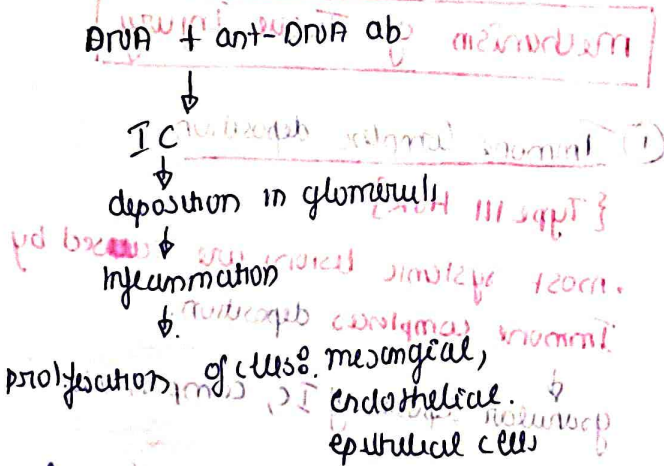 DNA + ant-DNA ab
↓
IC
↓
deposition in glomeruli
↓
Inflammation
↓
proliferation of cells: mesangial,
endothelial.
epithelial cells